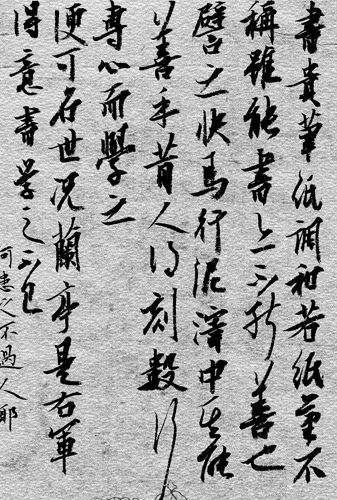 書貴筆紙調和若紙筆不
稱雖能書亦不能善也
譬之快馬行泥滓中其能
善乎昔人得刻數行
專心而學之
便可名世况蘭亭是右軍
得意書學之不已
何患之不過人耶